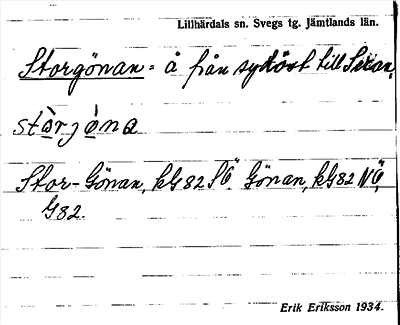 Lillhärdals sn. Svegs tg. Jämtlands län.
Storgönan = å från sydöst till Sexan.
stòrjö̀na
Stor-Gönan, kG 82 SÖ. Gönan, kG 82 NÖ,
G 82.
Erik Eriksson 1934.